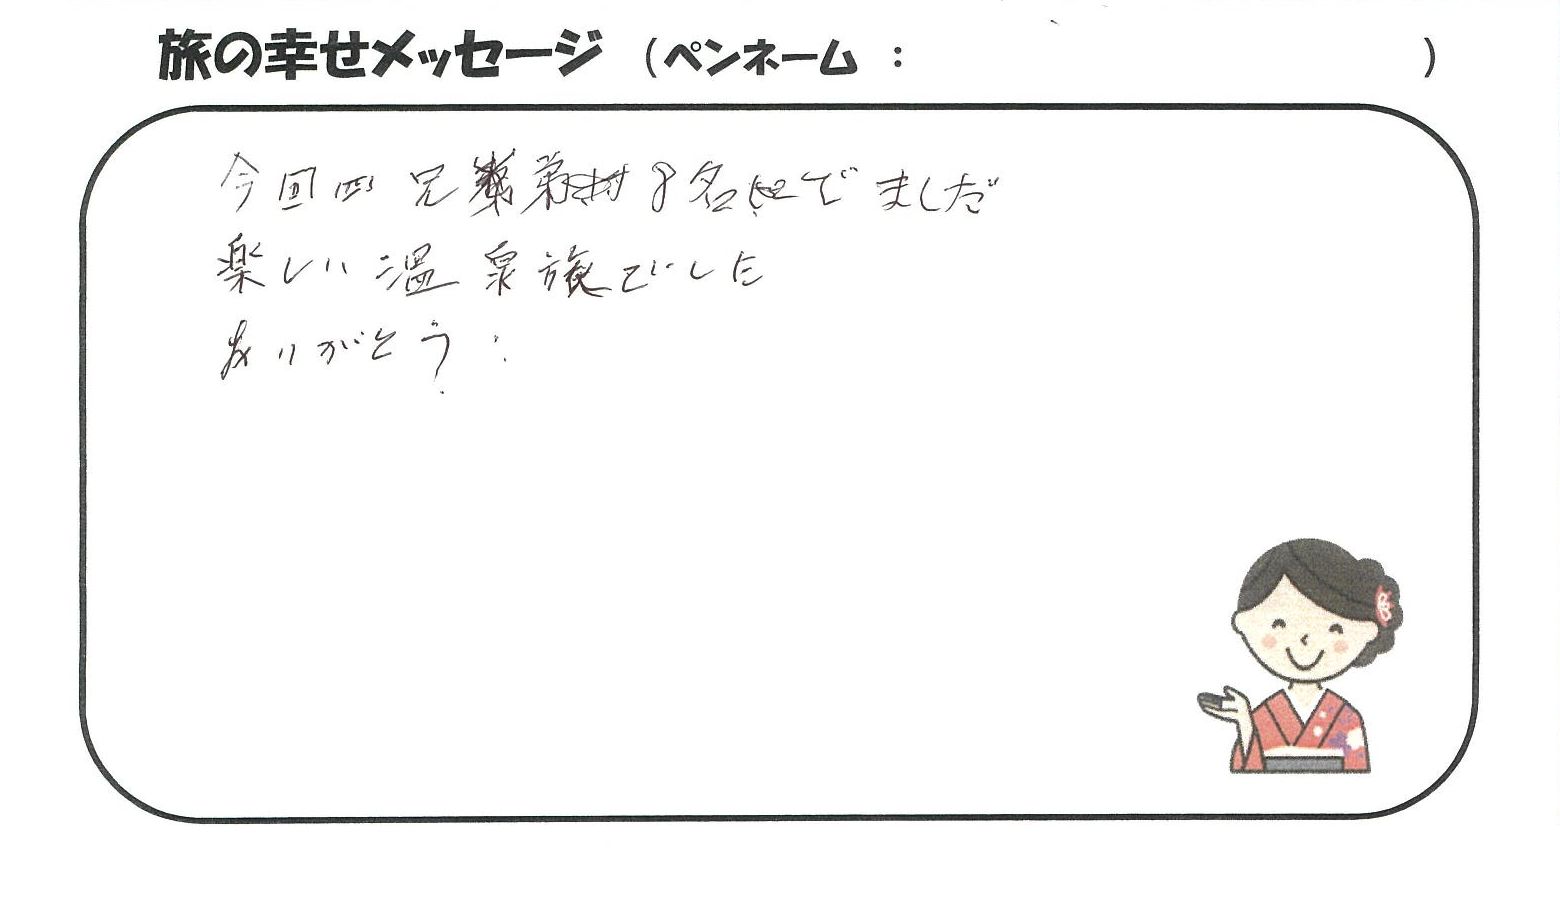 旅の幸せメッセージ (ペンネーム : )
今回は 兄 弟 8名 でましだ
楽しい温泉旅でした
ありがとう